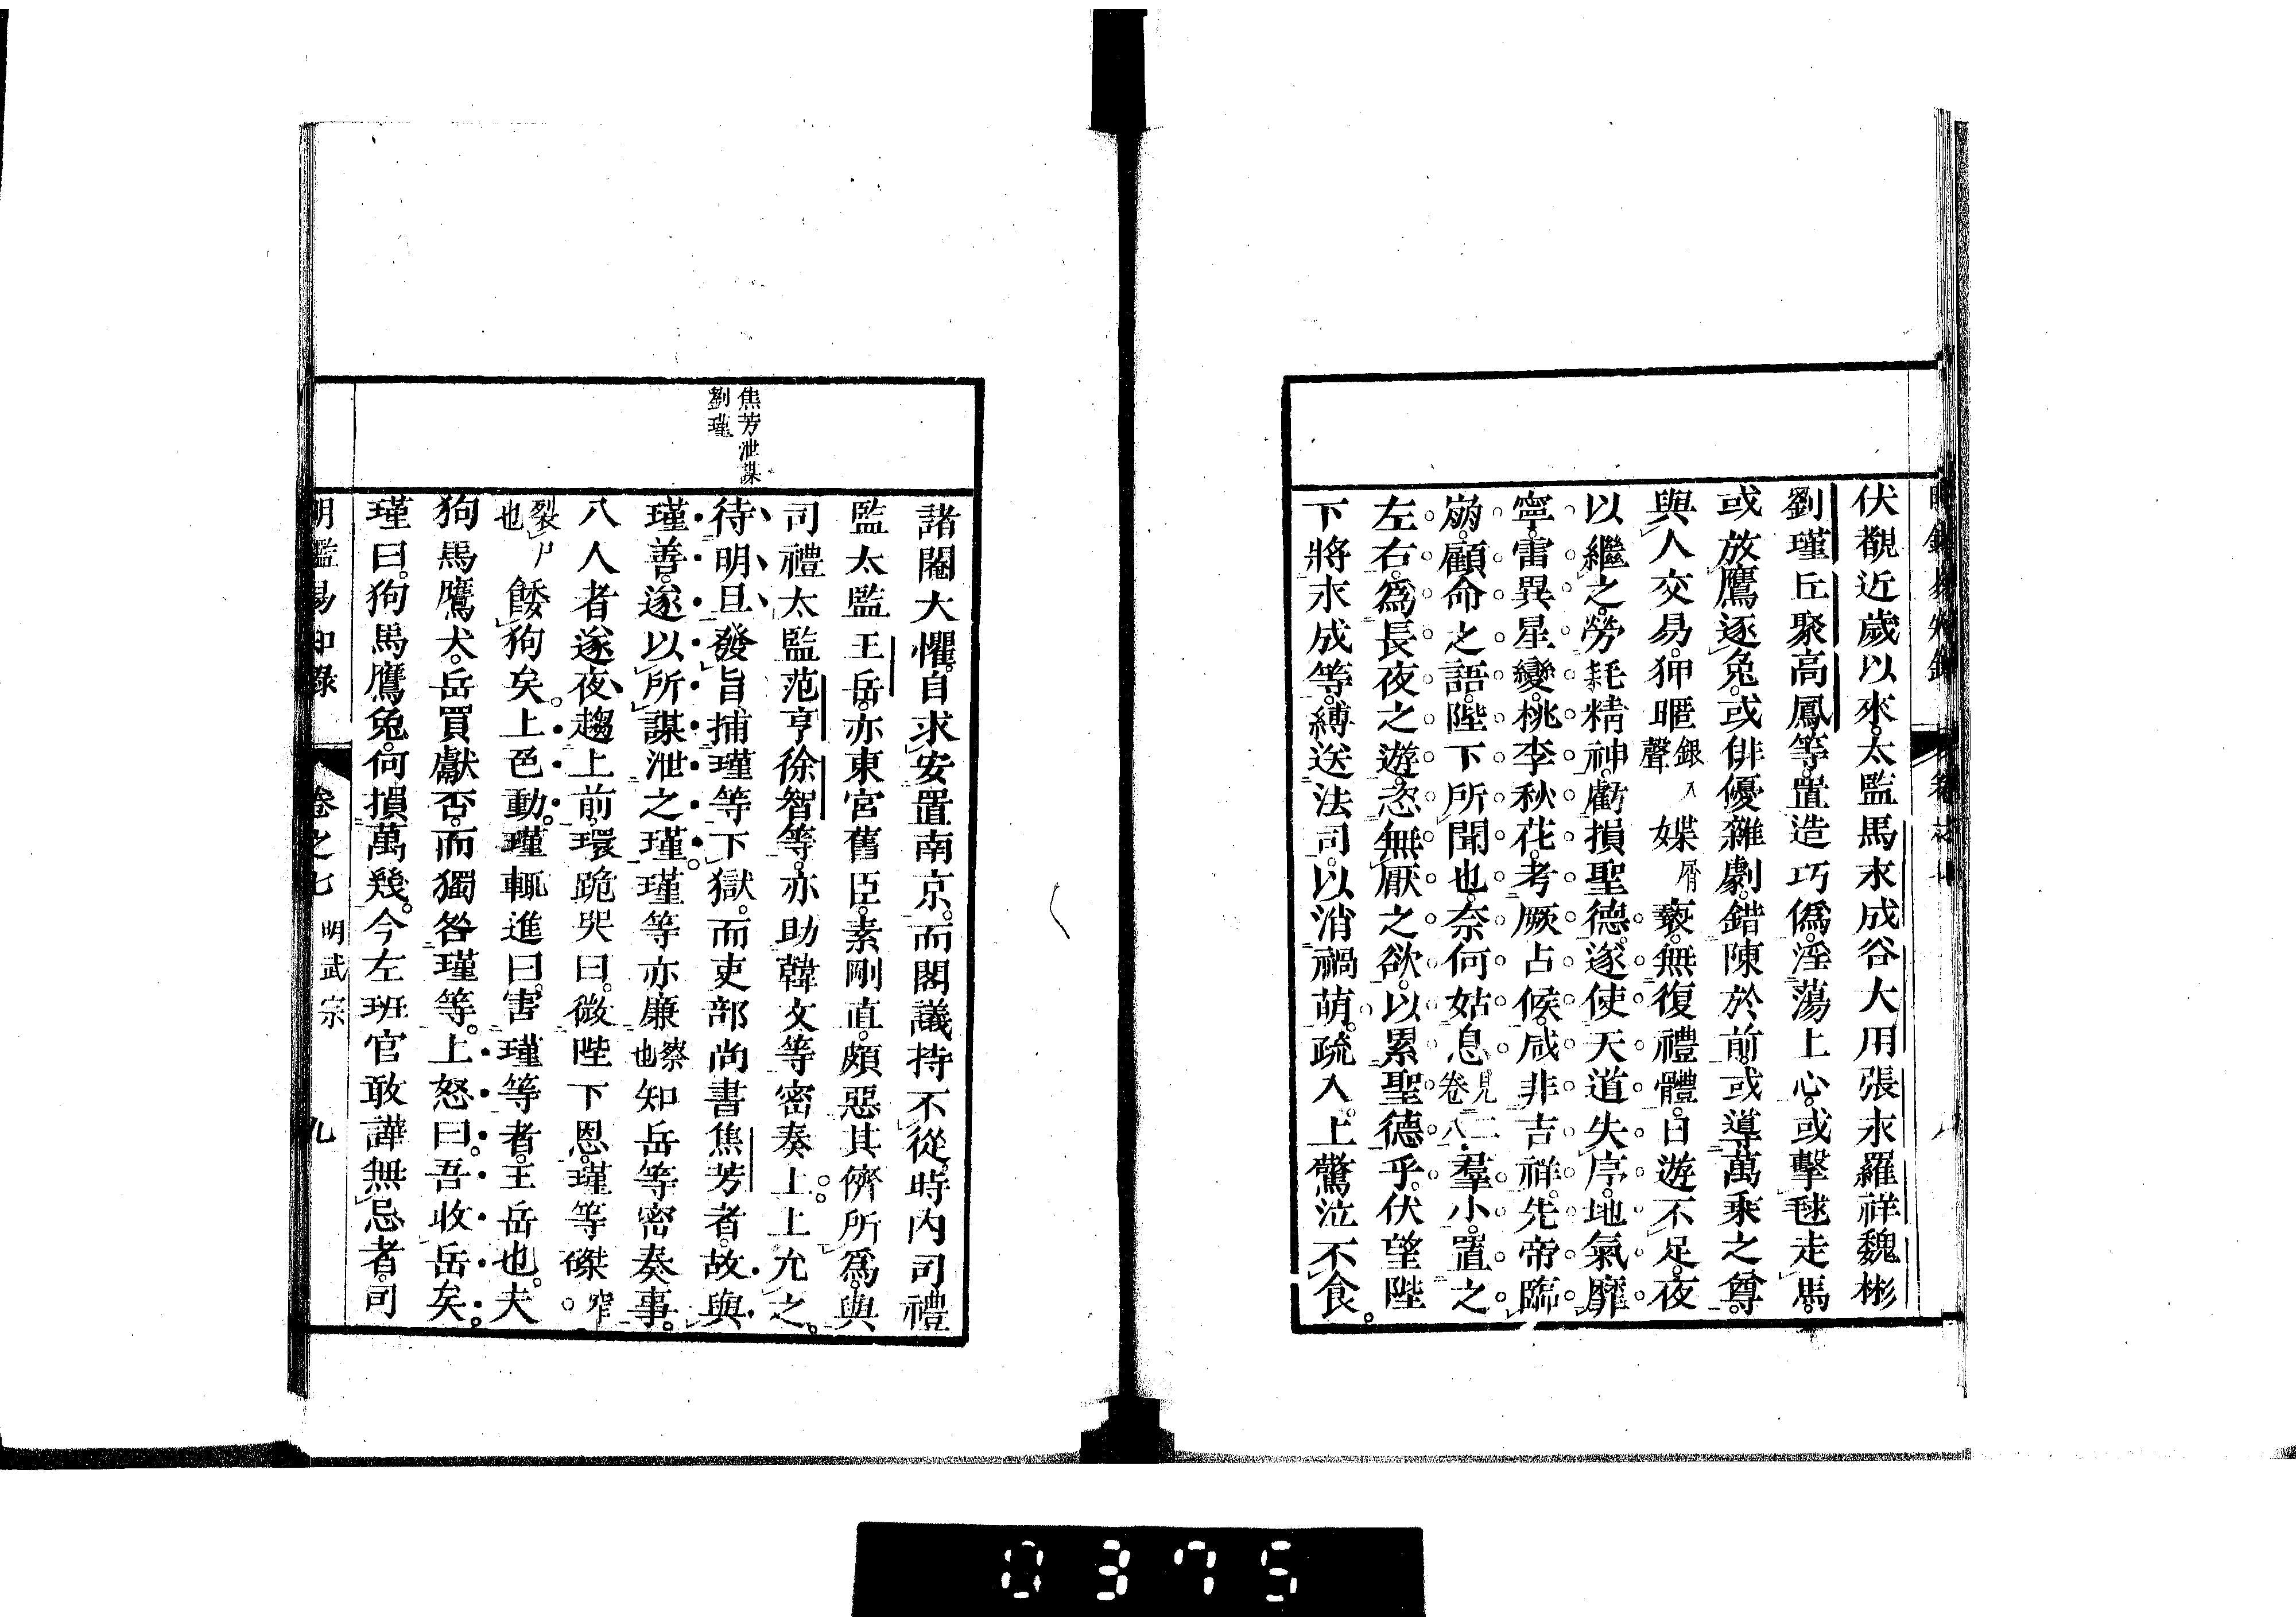 伏覩近歲以來。太監馬永成谷大用張永羅祥魏彬
劉瑾丘聚高鳳等。置造巧僞。淫蕩上心。或擊毬走馬。
或放鷹逐兔。或俳優雜劇。錯陳於前。或導萬乘之尊。
與人交易。狎暱銀入聲媟屑褻。無復禮體。日遊不足。夜
以繼之。勞耗精神。虧損聖德。遂使天道失序。地氣靡
寧。雷異星變。桃李秋花。考厥占候。咸非吉祥。先帝臨
崩。顧命之語。陛下所聞也。奈何姑息見二卷八。羣小。置之
左右。爲長夜之遊。恣無厭之欲。以累聖德乎。伏望陛
下將永成等。縛送法司。以消禍萌。疏入。上驚泣不食。
諸閹大懼。自求安置南京。而閣議持不從。時內司禮
監太監王岳。亦東宮舊臣。素剛直。頗惡其儕所爲。與
司禮太監范亨徐智等。亦助韓文等密奏上。上允之。
待明旦發旨捕瑾等下獄。而吏部尚書焦芳者。故與
瑾善。遂以所謀泄之瑾。瑾等亦廉察也知岳等密奏事。
八人者遂夜趨上前。環跪哭曰。微陛下恩。瑾等磔窄。
裂尸也餧狗矣。上色動。瑾輒進曰。害瑾等者。王岳也。夫
狗馬鷹犬。岳買獻否。而獨咎瑾等。上怒曰。吾收岳矣。
瑾曰。狗馬鷹兔。何損萬幾。今左班官敢譁無忌者。司
焦芳泄謀
劉瑾
明鑑易知錄 卷之七 明武宗 九
0375